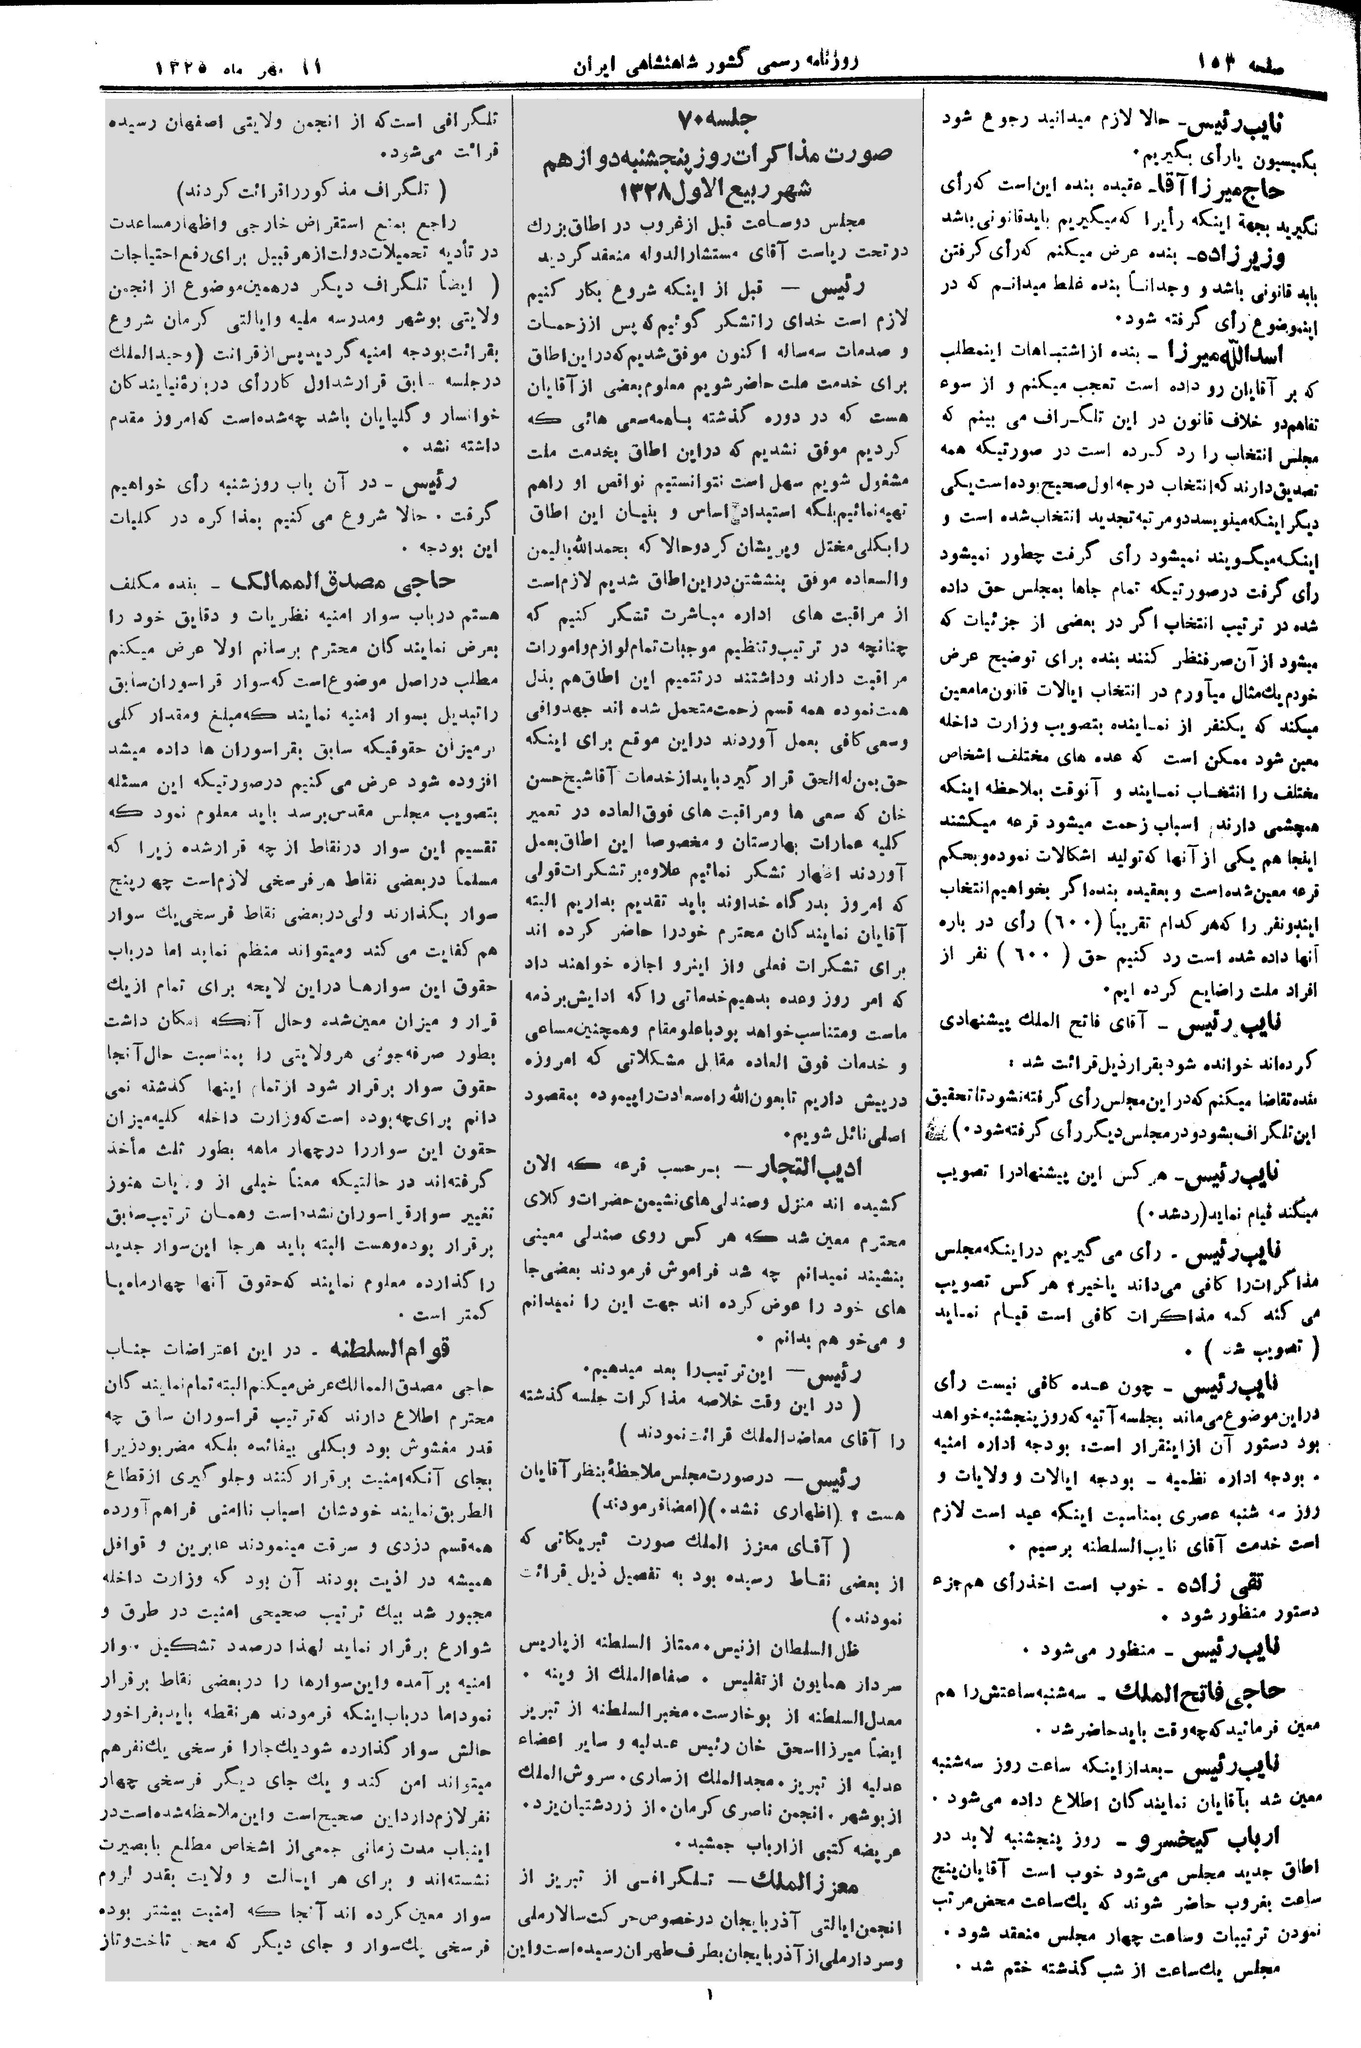 صفحه ۱۵۳
روزنامه رسمی کشور شاهنشاهی ایران
۱۱ مهر ماه ۱۳۲۵
نایب رئیس- حالا لازم میدانید رجوع شود
بکمیسیون یا رأی بگیریم.
حاج میرزا آقا- عقیده بنده این است که رأی
نگیرید بجهة اینکه رأیرا که میگیریم باید قانونی باشد
وزیرزاده- بنده عرض میکنم که رأی گرفتن
باید قانونی باشد و وجداناً بنده غلط میدانم که در
اینموضوع رأی گرفته شود.
اسدالله میرزا - بنده از اشتباهات اینمطلب
که بر آقایان رو داده است تعجب میکنم و از سوء
تفاهم دو خلاف قانون در این تلگراف می بینم که
مجلس انتخاب را رد کرده است در صورتیکه همه
تصدیق دارند که انتخاب درجه اول صحیح بوده است یکی
دیگر اینکه مینویسد دو مرتبه تجدید انتخاب شده است و
اینکه میگویند نمیشود رأی گرفت چطور نمیشود
رأی گرفت درصورتیکه تمام جاها بمجلس حق داده
شده در ترتیب انتخاب اگر در بعضی از جزئیات که
میشود از آن صرفنظر کنند بنده برای توضیح عرض
خودم یک مثال میآورم در انتخاب ایالات قانون ما معین
میکند که یکنفر از نماینده بتصویب وزارت داخله
معین شود ممکن است که عده های مختلف اشخاص
مختلف را انتخاب نمایند و آنوقت بملاحظه اینکه
همچشمی دارند اسباب زحمت میشود قرعه میکشند
اینجا هم یکی از آنها که تولید اشکالات نموده و بحکم
قرعه معین شده است و بعقیده بنده اگر بخواهیم انتخاب
ایندونفر را که هرکدام تقریباً (۶۰۰) رأی در باره
آنها داده شده است رد کنیم حق (۶۰۰) نفر از
افراد ملت را ضایع کرده ایم.
نایب رئیس - آقای فاتح الملک پیشنهادی
کرده اند خوانده شود بقرار ذیل قرائت شد :
بنده تقاضا میکنم که در این مجلس رأی گرفته نشود تا تحقیق
این تلگراف بشود و در مجلس دیگر رأی گرفته شود.)
نایب رئیس- هر کس این پیشنهاد را تصویب
میکند قیام نماید (رد شد.)
نایب رئیس - رأی می گیریم در اینکه مجلس
مذاکرات را کافی می داند یا خیر؟ هر کس تصویب
می کند که مذاکرات کافی است قیام نماید
( تصویب شد ) .
نایب رئیس - چون عده کافی نیست رأی
در این موضوع می ماند بجلسه آتیه که روز پنجشنبه خواهد
بود دستور آن از اینقرار است: بودجه اداره امنیه
. بودجه اداره نظمیه - بودجه ایالات و ولایات و
روز سه شنبه عصری بمناسبت اینکه عید است لازم
است خدمت آقای نایب السلطنه برسیم .
تقی زاده - خوب است اخذ رأی هم جزء
دستور منظور شود .
نایب رئیس - منظور می شود .
حاجی فاتح الملک - سه شنبه ساعتش را هم
معین فرمائید که چه وقت باید حاضر شد.
نایب رئیس - بعد از اینکه ساعت روز سه شنبه
معین شد بآقایان نمایندگان اطلاع داده می شود .
ارباب کیخسرو - روز پنجشنبه لابد در
اطاق جدید مجلس می شود خوب است آقایان پنج
ساعت بغروب حاضر شوند که یک ساعت محض مرتب
نمودن ترتیبات و ساعت چهار مجلس منعقد شود .
مجلس یک ساعت از شب گذشته ختم شد .
جلسه ۷۰
صورت مذاکرات روز پنجشنبه دوازهم
شهر ربیع الاول ۱۳۲۸
مجلس دو ساعت قبل از غروب در اطاق بزرگ
در تحت ریاست آقای مستشارالدوله منعقد گردید
رئیس - قبل از اینکه شروع بکار کنیم
لازم است خدای را تشکر گوئیم که پس از زحمات
و صدمات سه ساله اکنون موفق شدیم که در این اطاق
برای خدمت ملت حاضر شویم معلوم بعضی از آقایان
هست که در دوره گذشته با همه سعی هائی که
کردیم موفق نشدیم که در این اطاق بخدمت ملت
مشغول شویم سهل است نتوانستیم نواقص او را هم
تهیه نمائیم بلکه استبداد اساس و بنیان این اطاق
را بکلی مختل و پریشان کرد و حالا که بحمدالله بالیمن
والسعاده موفق بنشستن در این اطاق شدیم لازم است
از مراقبت های اداره مباشرت تشکر کنیم که
چنانچه در ترتیب و تنظیم موجبات تمام لوازم و امورات
مراقبت دارند و داشتند در تتمیم این اطاق هم بذل
همت نموده همه قسم زحمت متحمل شده اند جهد وافی
و سعی کافی بعمل آوردند در این موقع برای اینکه
حق بمن له الحق قرار گیرد باید از خدمات آقا شیخ حسن
خان که سعی ها و مراقبت های فوق العاده در تعمیر
کلیه عمارات بهارستان و مخصوصا این اطاق بعمل
آوردند اظهار تشکر نمائیم علاوه بر تشکرات قولی
که امروز بدرگاه خداوند باید تقدیم بداریم البته
آقایان نمایندگان محترم خود را حاضر کرده اند
برای تشکرات فعلی و از اینرو اجازه خواهند داد
که امر روز وعده بدهیم خدماتی را که ادایش بر ذمه
ماست و متناسب خواهد بود با علو مقام و همچنین مساعی
و خدمات فوق العاده مقابل مشکلاتی که امروزه
در پیش داریم تا بعون الله راه سعادت را پیموده بمقصود
اصلی نائل شویم.
ادیب التجار - بر حسب قرعه که الان
کشیده اند منزل و صندلی های نشیمن حضرات وکلای
محترم معین شد که هر کس روی صندلی معینی
بنشیند نمیدانم چه شد فراموش فرمودند بعضی جا
های خود را عوض کرده اند جهت این را نمیدانم
و می خواهم بدانم .
رئیس - این ترتیب را بعد میدهیم.
( در این وقت خلاصه مذاکرات جلسه گذشته
را آقای معاضد الملک قرائت نمودند )
رئیس - در صورت مجلس ملاحظهٔ بنظر آقایان
هست ؟ (اظهاری نشد.) (امضا فرمودند)
( آقای معزز الملک صورت تبریکاتی که
از بعضی نقاط رسیده بود به تفصیل ذیل قرائت
نمودند.)
ظل السلطان از نیس. ممتاز السلطنه از پاریس
سردار همایون از تفلیس . صفاء الملک از وینه .
معدل السلطنه از بوخارست. مخبر السلطنه از تبریز
ایضاً میرزا اسحق خان رئیس عدلیه و سایر اعضاء
عدلیه از تبریز. مجد الملک از ساری. سروش الملک
از بوشهر. انجمن ناصری کرمان. از زردشتیان یزد.
عریضه کتبی از ارباب جمشید.
معزز الملک - تلگرافی از تبریز از
انجمن ایالتی آذربایجان در خصوص حرکت سالار ملی
و سردار ملی از آذربایجان بطرف طهران رسیده است و این
تلگرافی است که از انجمن ولایتی اصفهان رسیده
قرائت می شود.
( تلگراف مذکور را قرائت کردند)
راجع بمنع استقراض خارجی و اظهار مساعدت
در تأدیه تحمیلات دولت از هر قبیل برای رفع احتیاجات
( ایضاً تلگراف دیگر در همین موضوع از انجمن
ولایتی بوشهر و مدرسه ملیه و ایالتی کرمان شروع
بقرائت بودجه امنیه گردید پس از قرائت (وحید الملک
در جلسه سابق قرار شد اول کار رأی در باره نمایندگان
خوانسار و گلپایگان باشد چه شده است که امروز مقدم
داشته نشد .
رئیس - در آن باب روز شنبه رأی خواهیم
گرفت . حالا شروع می کنیم بمذاکره در کلیات
این بودجه .
حاجی مصدق الممالک - بنده مکلف
هستم در باب سوار امنیه نظریات و دقایق خود را
بعرض نمایندگان محترم برسانم اولا عرض میکنم
مطلب در اصل موضوع است که سوار قراسوران سابق
را تبدیل بسوار امنیه نمایند که مبلغ و مقدار کلی
بر میزان حقوقیکه سابق بقراسوران ها داده میشد
افزوده شود عرض می کنیم در صورتیکه این مسئله
بتصویب مجلس مقدس برسد باید معلوم نمود که
تقسیم این سوار در نقاط از چه قرار شده زیرا که
مسلماً در بعضی نقاط هر فرسخی لازم است چهار پنج
سوار بگذارند ولی در بعضی نقاط فرسخی یک سوار
هم کفایت می کند و میتواند منظم نماید اما در باب
حقوق این سوارها در این لایحه برای تمام از یک
قرار و میزان معین شده و حال آنکه امکان داشت
بطور صرفه جوئی هر ولایتی را بمناسبت حال آنجا
حقوق سوار برقرار شود از تمام اینها گذشته نمی
دانم برای چه بوده است که وزارت داخله کلیه میزان
حقوق این سوار را در چهار ماهه بطور ثلث مأخذ
گرفته اند در حالتیکه معناً خیلی از ولایات هنوز
تغییر سوار قراسوران نشده است و همان ترتیب سابق
برقرار بوده و هست البته باید هر جا این سوار جدید
را گذارده معلوم نمایند که حقوق آنها چهار ماه یا
کمتر است .
قوام السلطنه - در این اعتراضات جناب
حاجی مصدق الممالک عرض میکنم البته تمام نمایندگان
محترم اطلاع دارند که ترتیب قراسوران سابق چه
قدر مغشوش بود و بکلی بیفائده بلکه مضر بود زیرا
بجای آنکه امنیت برقرار کنند و جلوگیری از قطاع
الطریق نمایند خودشان اسباب ناامنی فراهم آورده
همه قسم دزدی و سرقت مینمودند عابرین و قوافل
همیشه در اذیت بودند آن بود که وزارت داخله
مجبور شد بیک ترتیب صحیحی امنیت در طرق و
شوارع برقرار نماید لهذا در صدد تشکیل سوار
امنیه برآمده و این سوارها را در بعضی نقاط برقرار
نمود اما در باب اینکه فرمودند هر نقطه باید بفراخور
حالش سوار گذارده شود یک جا را فرسخی یک نفر هم
میتواند امن کند و یک جای دیگر فرسخی چهار
نفر لازم دارد این صحیح است و این ملاحظه شده است در
اینباب مدت زمانی جمعی از اشخاص مطلع با بصیرت
نشسته اند و برای هر ایالت و ولایت بقدر لزوم
سوار معین کرده اند آنجا که امنیت بیشتر بوده
فرسخی یک سوار و جای دیگر که محل تاخت و تاز
۱